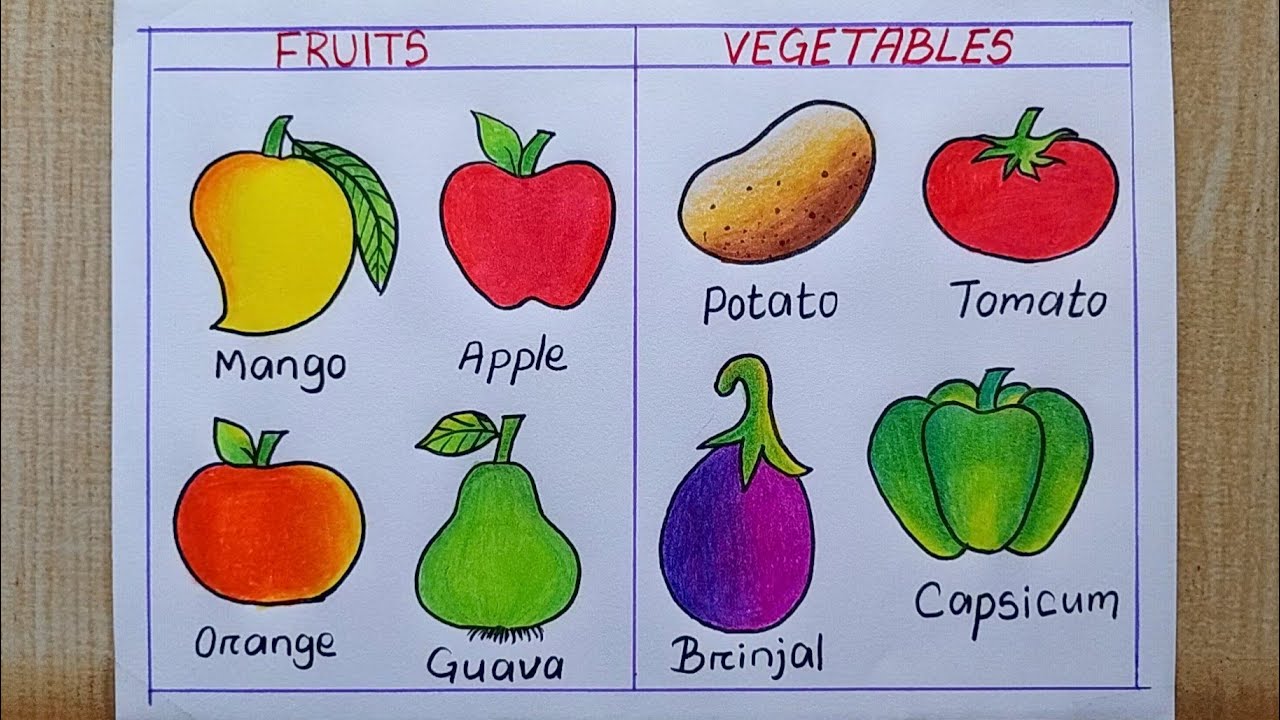 FRUITS
VEGETABLES
Mango
Apple
Orange
Guava
Potato
Tomato
Brinjal
Capsicum